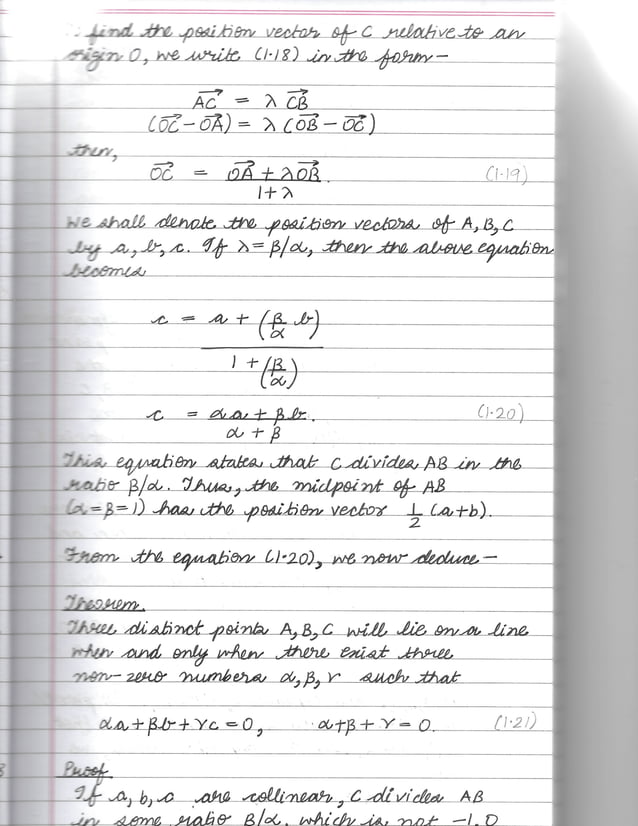 find the position vector of C relative to an
origin O, we write (1.18) in the form –
→AC = λ →CB
(→OC – →OA) = λ (→OB – →OC)
then,
→OC = →OA + λ→OB. (1.19)
1+λ
We shall denote the position vectors of A, B, C
by a, b, c. If λ = β/α, then the above equation
becomes
c = a + (β/α b)
1 + (β/α)
c = αa + βb. (1.20)
α + β
This equation states that C divides AB in the
ratio β/α. Thus, the midpoint of AB
(α=β=1) has the position vector 1/2 (a+b).
From the equation (1.20), we now deduce –
Theorem.
Three distinct points A, B, C will lie on a line
when and only when there exist three
non-zero numbers α, β, γ such that
αa + βb + γc = 0, α+β+γ = 0. (1.21)
Proof.
If a, b, c are collinear, C divides AB
in some ratio β/α, which is not -1, 0